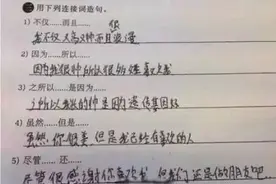 三 用下列连接词造句。
1) 不仅……而且……
很
我不仅人高又帅而且浪漫
2) 因为……所以……
因为我很帅所以很多姓喜欢我
3) 之所以……是因为……
之所以我长的帅是因为遗传基因好
4) 虽然……但是……
虽然你很美但是我已经有喜欢的人
5) 尽管…… 还……
尽管很感谢你喜欢我但我们还是做朋友吧